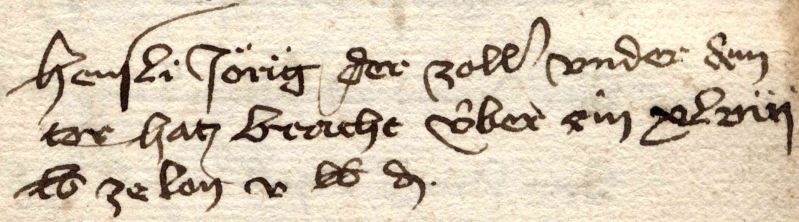 Hensli Jörig der zoller under dem
tor hatz bracht über ein xlviij
lb ze lon v lb d.